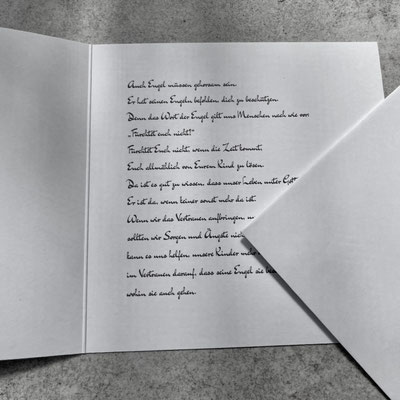 Auch Engel müssen gehorsam sein.
Er hat seinen Engeln befohlen, dich zu beschützen.
Denn das Wort der Engel gilt uns Menschen nach wie vor:
„Fürchtet euch nicht!"
Fürchtet Euch nicht, wenn die Zeit kommt,
Euch allmählich von Eurem Kind zu lösen.
Da ist es gut zu wissen, dass unser Leben unter Gott
Er ist da, wenn keiner sonst mehr da ist.
Wenn wir das Vertrauen aufbringen,
sollten wir Sorgen und Ängste
kann es uns helfen, unsere Kinder
im Vertrauen darauf, dass seine Engel sie
wohin sie auch gehen.